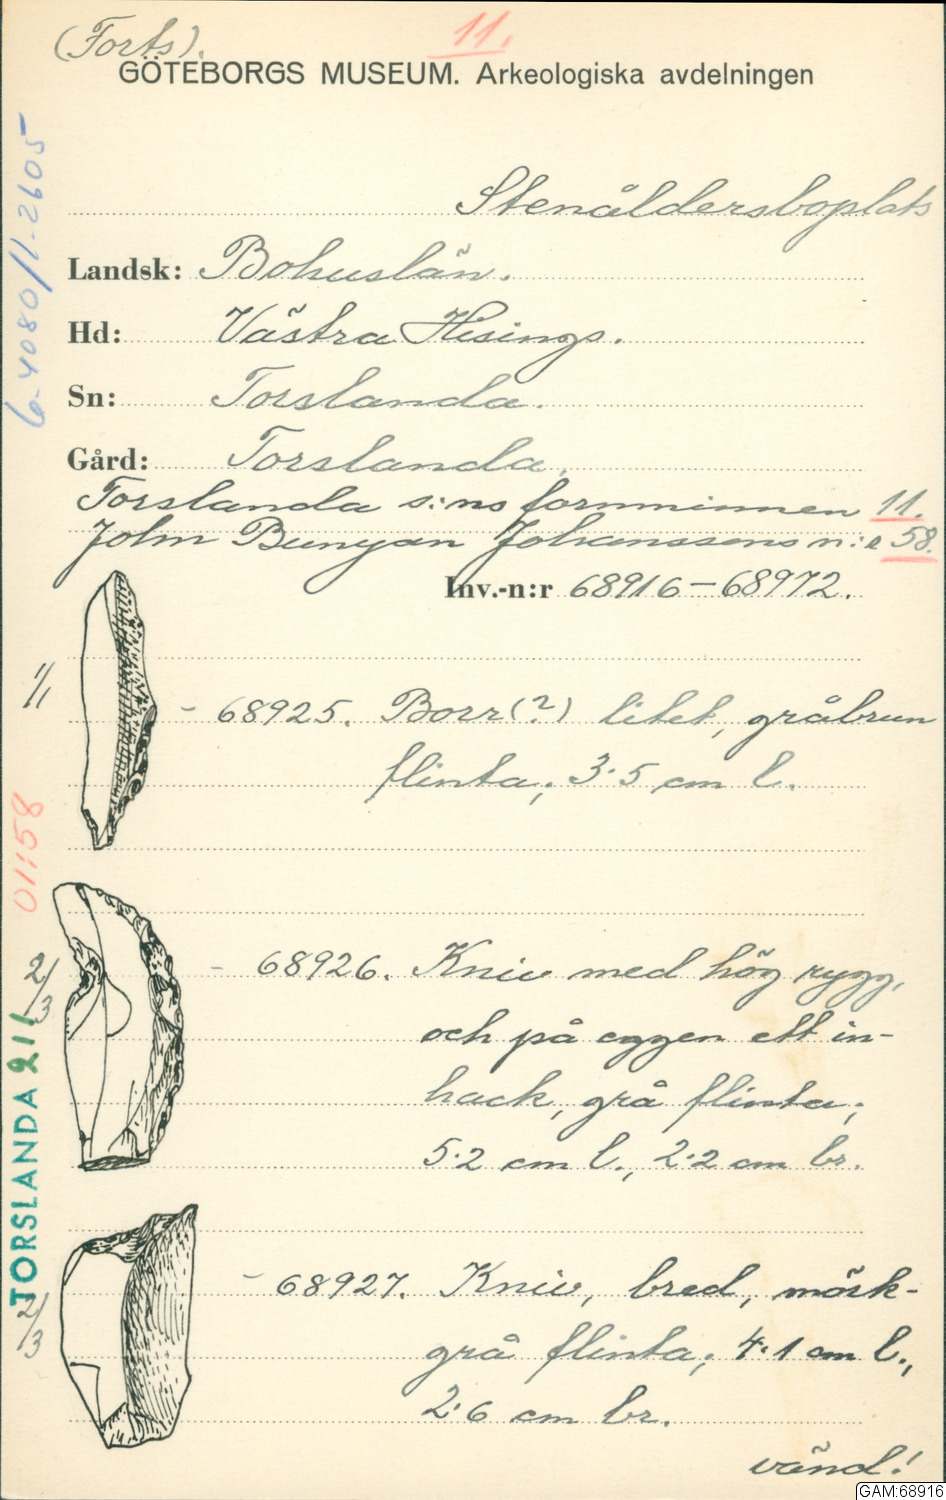 (Forts).
11.
GÖTEBORGS MUSEUM. Arkeologiska avdelningen
Stenåldersboplats
Landsk: Bohuslän.
Hd: Västra Hisings.
Sn: Torslanda.
Gård: Torslanda.
Torslanda s:ns fornminnen 11.
John Bunyan Johanssons n:r 58.
Inv.-n:r 68916-68972.
1/1
- 68925. Borr(?) litet, gråbrun
flinta; 3·5 cm l.
2/3
- 68926. Kniv med hög rygg,
och på eggen ett in-
hack, grå flinta;
5·2 cm l., 2·2 cm br.
2/3
- 68927. Kniv, bred, mörk-
grå flinta; 4·1 cm l.,
2·6 cm br.
vänd!
6-4080/1-2605
01:58
TORSLANDA 211
GAM:68916